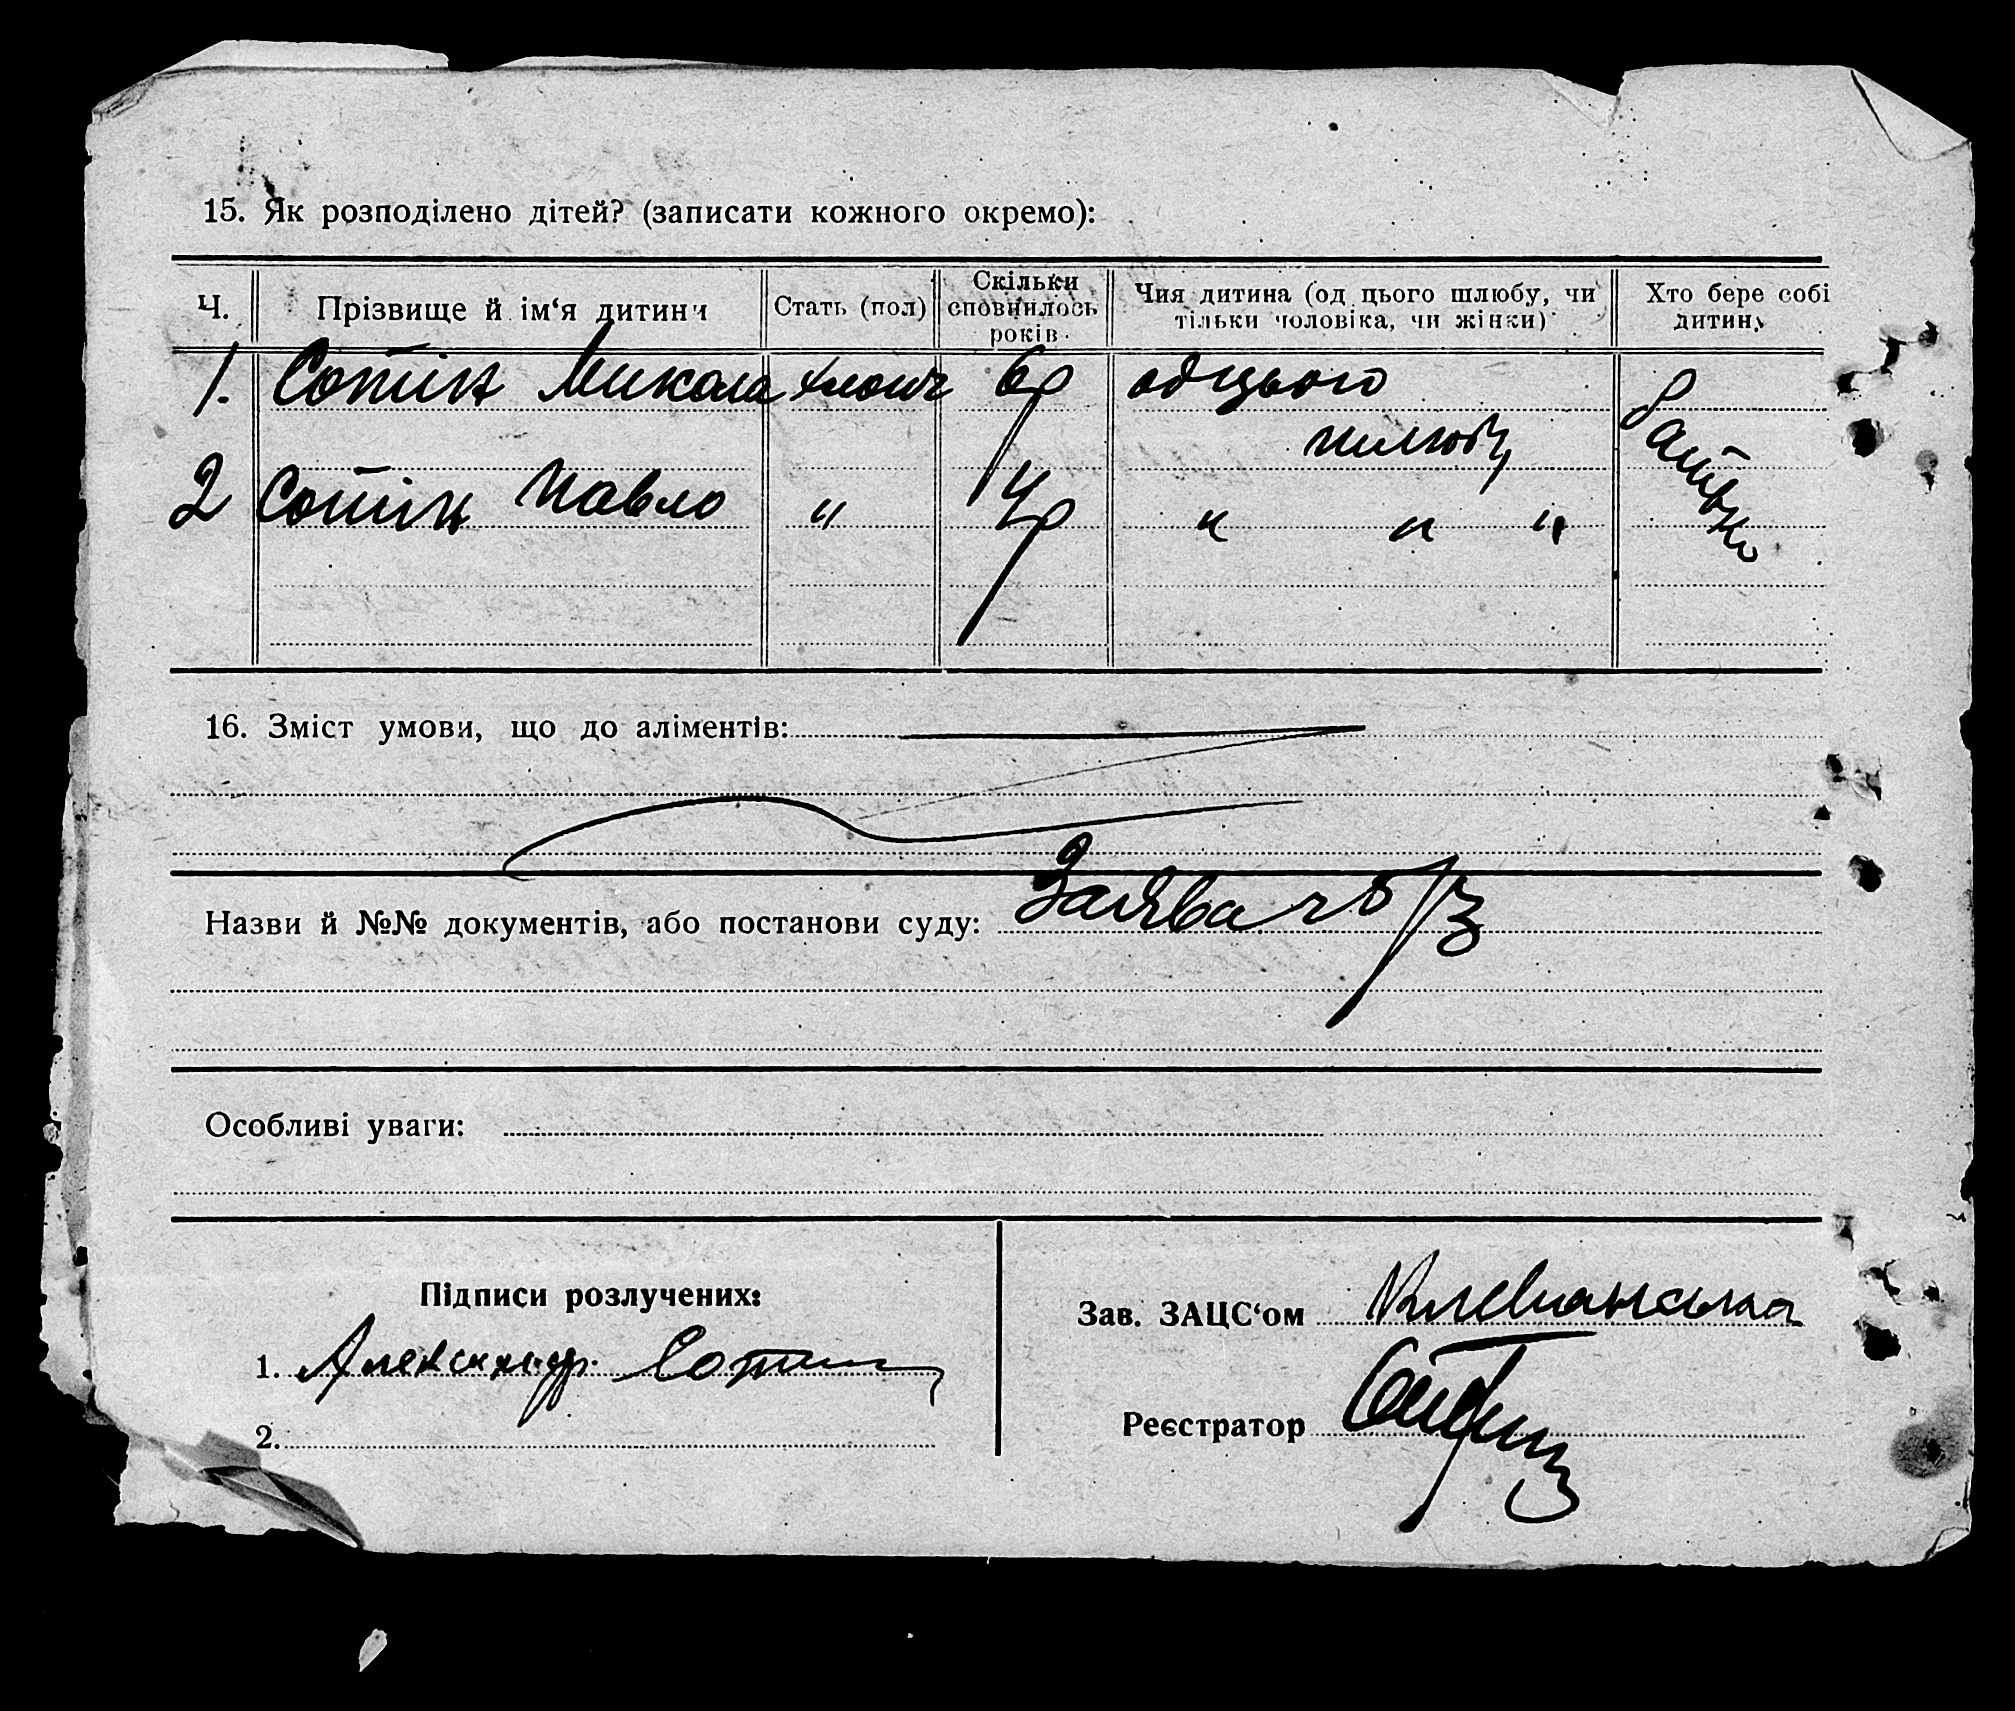 15. Як розподілено дітей? (записати кожного окремо):
Ч. Прізвище й ім‘я дитини Стать (пол) Скільки сповнилось років Чия дитина (од цього шлюбу, чи тільки чоловіка, чи жінки) Хто бере собі дитину
1. Сотін Микола хлопч 6р од цього
шлюбу
батько
2 Сотін Павло " 4р " " "
16. Зміст умови, що до аліментів:
Назви й №№ документів, або постанови суду: Заява
Особливі уваги:
Підписи розлучених:
Зав. ЗАЦС‘ом
1. Александр Сотин
Реєстратор
2.